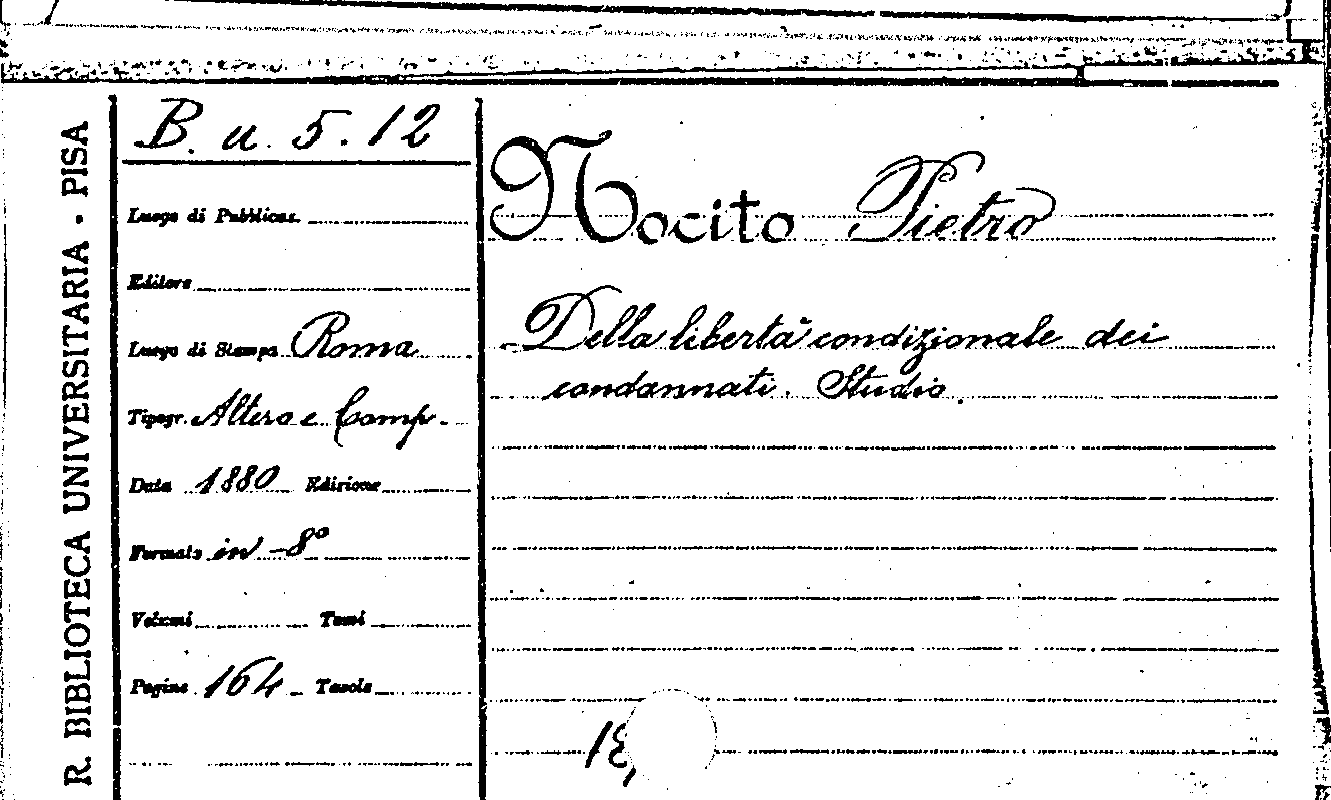 R. BIBLIOTECA UNIVERSITARIA - PISA
B. u. 5. 12
Luogo di Pubblicaz.
Editore
Luogo di Stampa Roma
Tipogr. Altero e Comp.
Data 1880 Edizione
Formato in-8º
Volumi Tomi
Pagine 164 Tavole
Nocito Pietro
Della libertà condizionale dei
condannati. Studio.